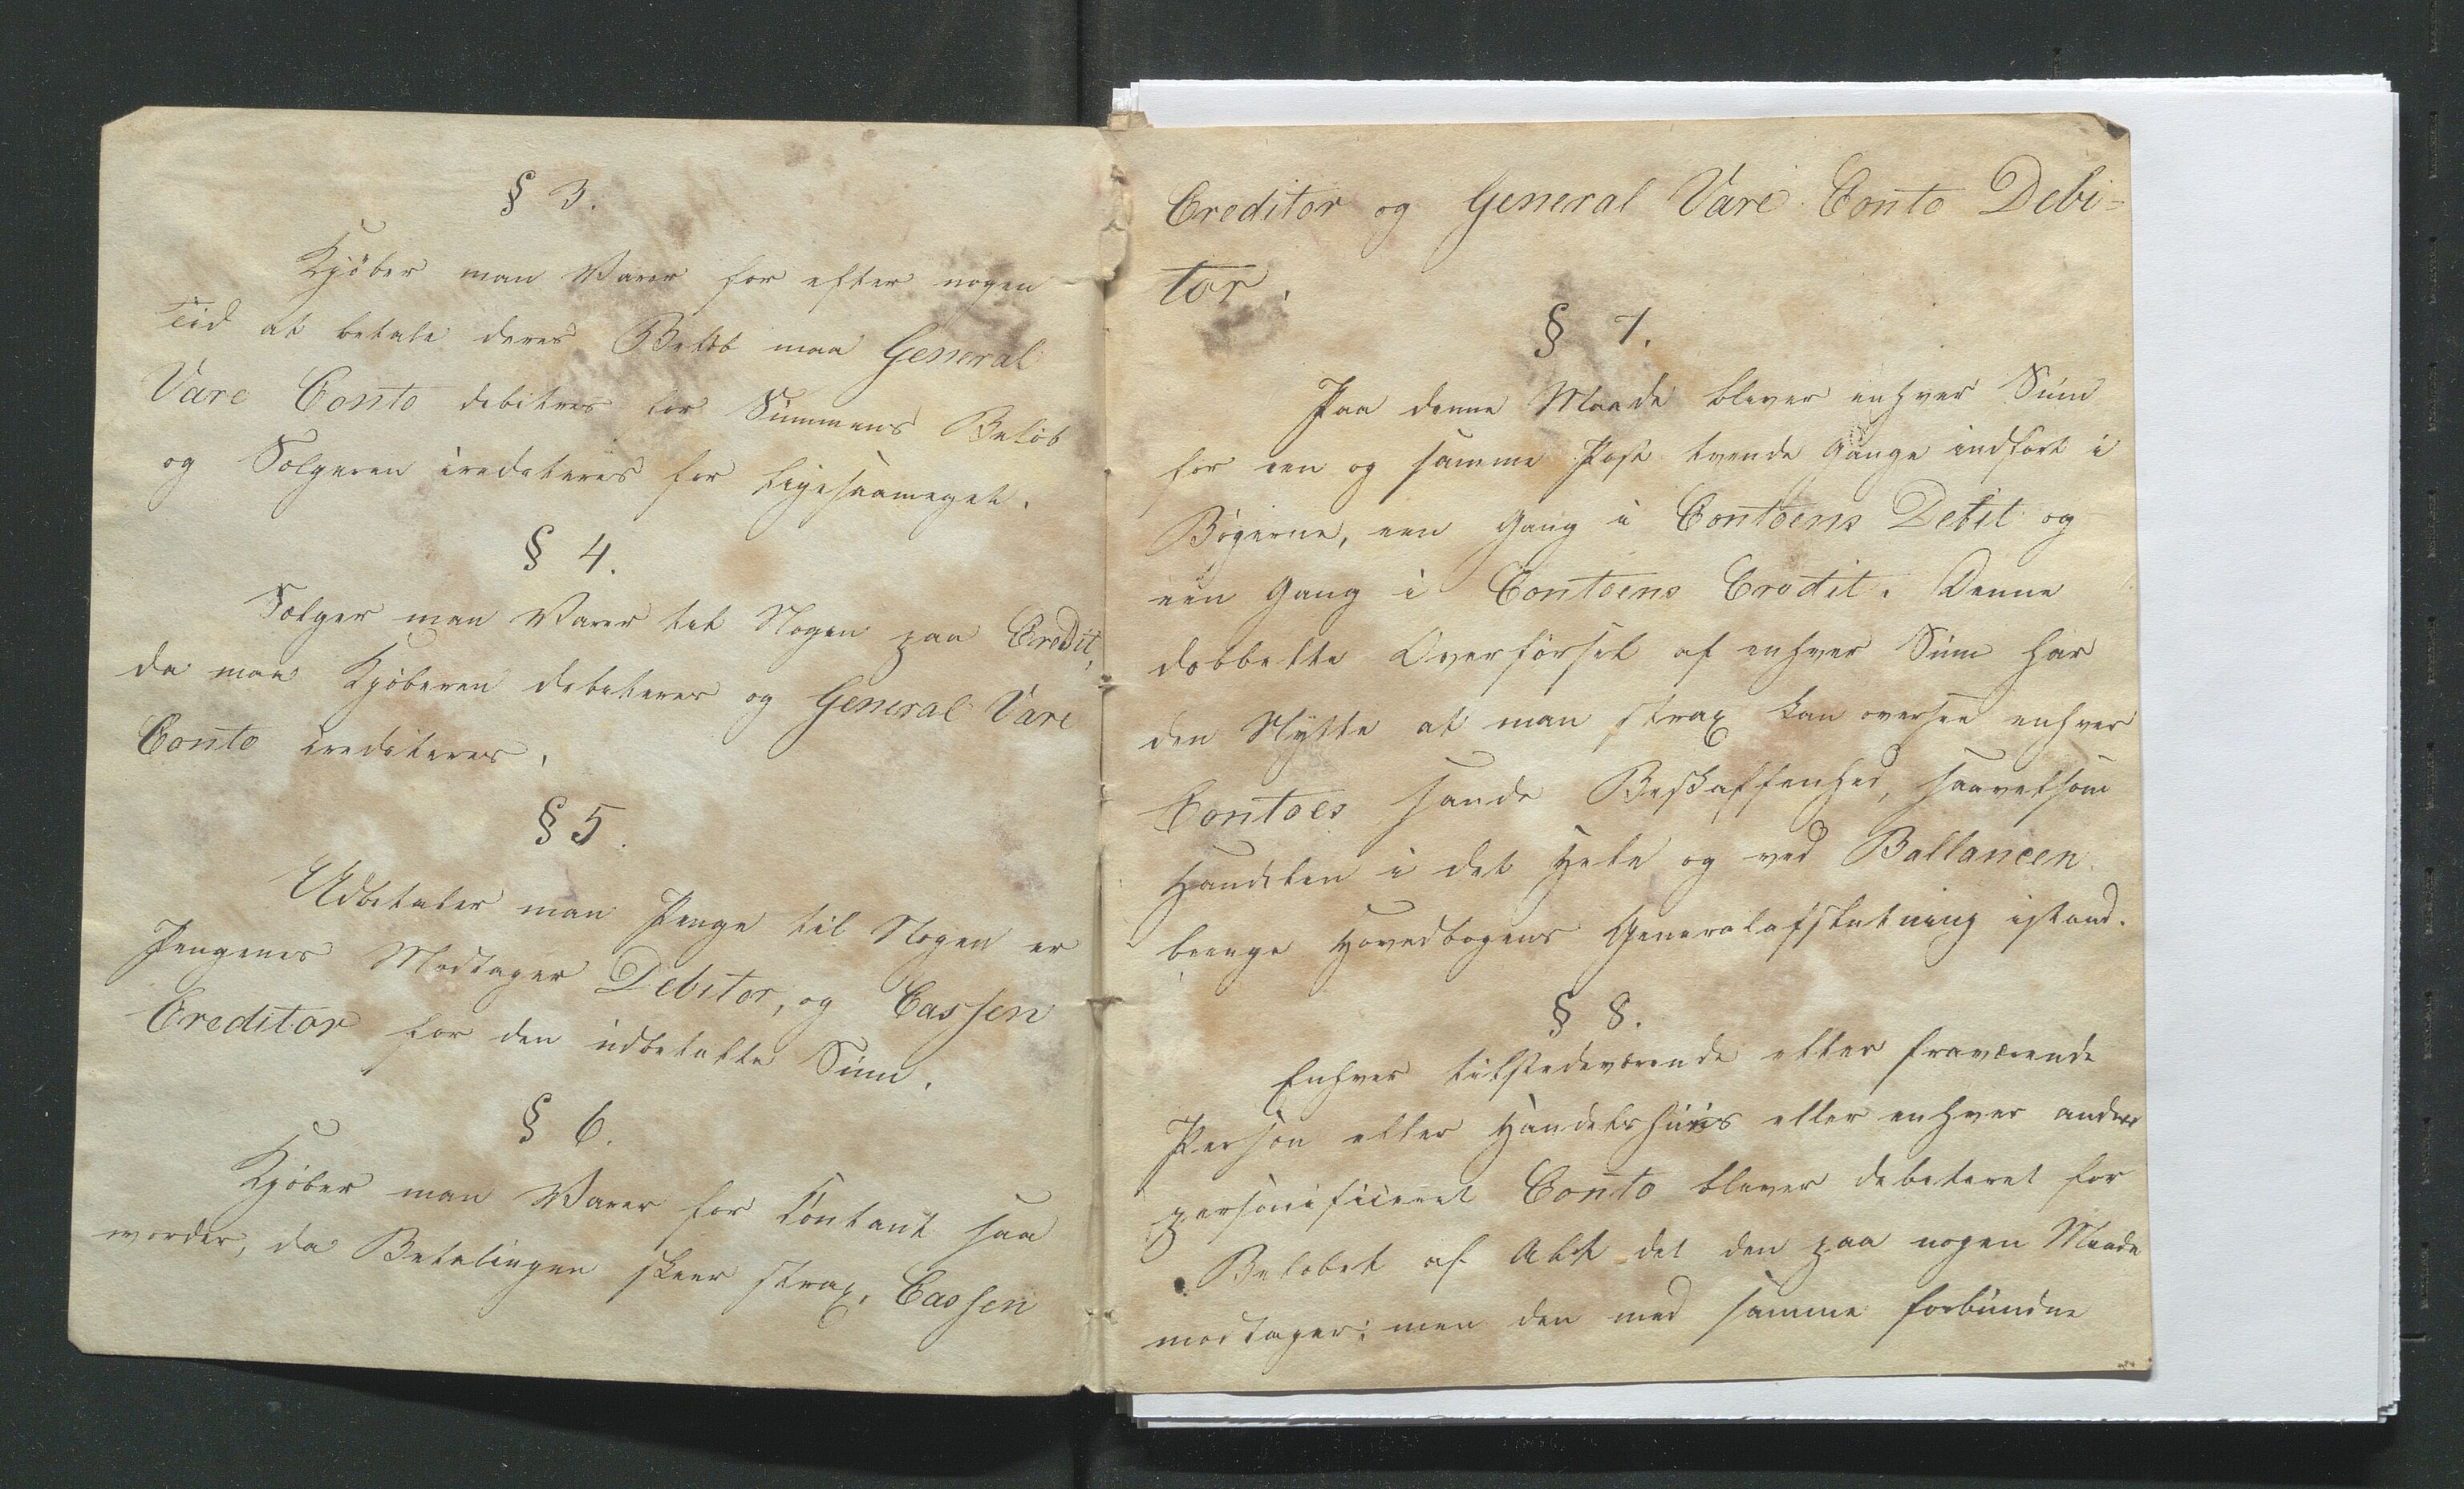 § 3.
Kjöber man Varer for efter nogen
Tid at betale deres Belöb maa General
Vare Conto debiteres for Summens Belöb
og Sælgeren crediteres for ligesaameget.
§ 4.
Sælger man Varer til Nogen paa Credit,
da maa Kjöberen debiteres og General Vare
Conto crediteres.
§ 5.
Udbetaler man Penge til Nogen er
Pengenes Modtager Debitor, og Cassen
Creditor for den udbetalte Sum.
§ 6.
Kjöber man Varer for Contant saa
vorder, da Betalingen skeer strax, Cassen
Creditor og General Vare Conto Debi=
tor.
§ 7.
Paa denne Maade bliver enhver Sum
for een og samme Post tvende Gange indfört i
Bögerne, een Gang i Contoens Debit og
een Gang i Contoens Credit. Denne
dobbelte Overförsel af enhver Sum har
den Nytte at man strax kan oversee enhver
Contoes sande Beskaffenhed, saavelsom
Handelen i det Hele og ved Ballancen
bringe Hovedbogens Generalafslutning istand.
§ 8.
Enhver tilstedeværende eller fraværende
Person eller Handelshuus eller enhver anden
personificeret Conto bliver debiteret for
Belöbet af Alt det den paa nogen Maade
modtager; men den med samme forbundne